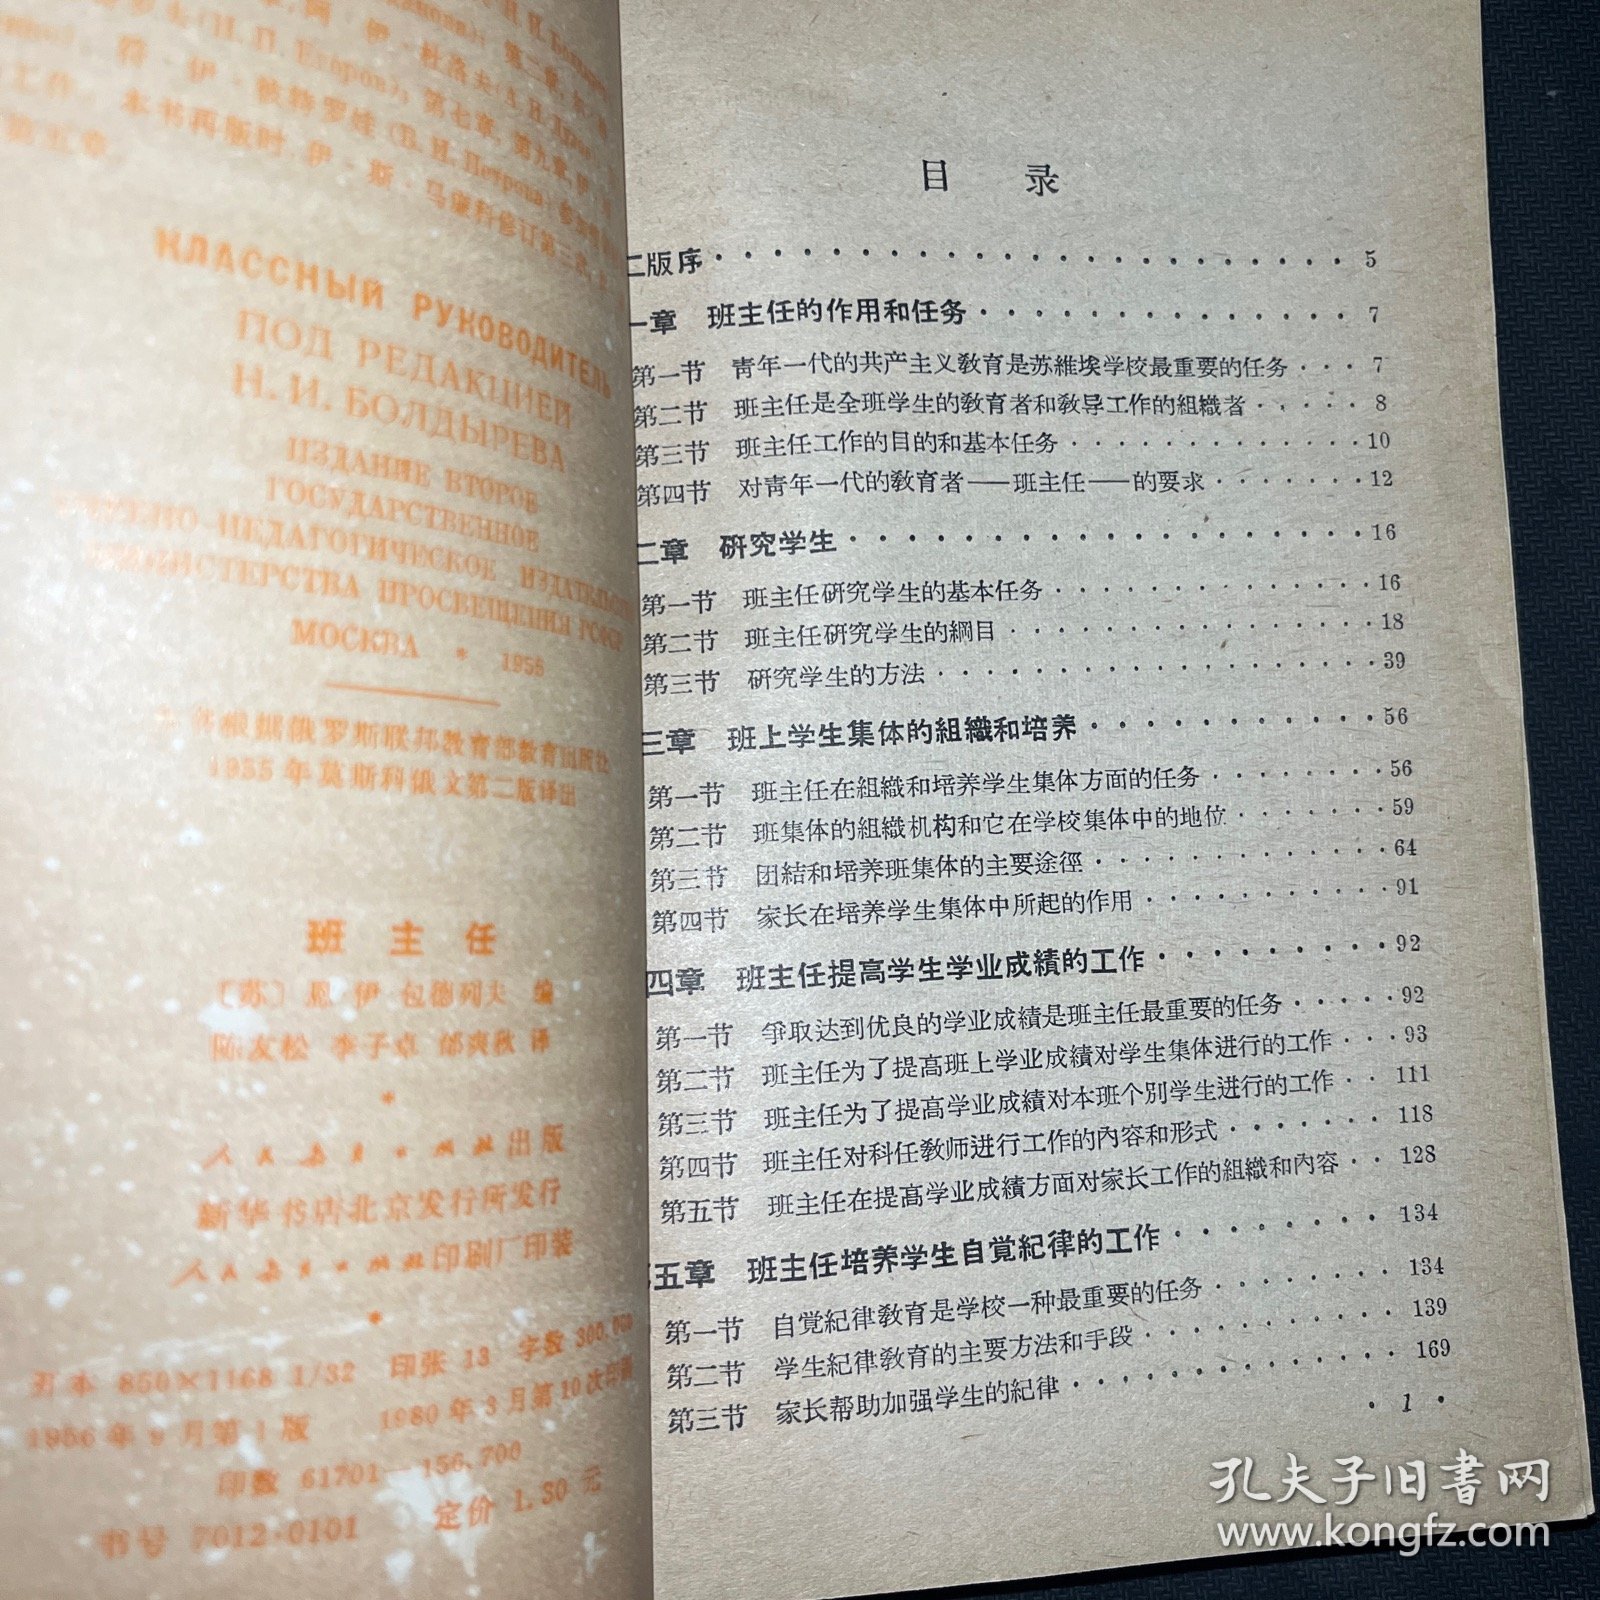 КЛАССНЫЙ РУКОВОДИТЕЛЬ
ПОД РЕДАКЦИЕЙ
Н. И. БОЛДЫРЕВА
ИЗДАНИЕ ВТОРОЕ
ГОСУДАРСТВЕННОЕ
ПЕДАГОГИЧЕСКОЕ
ПРОСВЕЩЕНИЯ РСФСР
МОСКВА * 1955
根据俄罗斯联邦教育部教育出版社
1955年莫斯科俄文第二版译出
班主任
〔苏〕恩 伊 包德列夫 编
陈友松 李子卓 邰爽秋 译
*
人民教育出版社出版
新华书店北京发行所发行
人民教育出版社印刷厂印装
*
开本 850×1168 1/32 印张 13 字数 300,000
1956年9月第1版 1980年3月第10次印刷
印数 61701—156,700
书号 7012·0101 定价 1.30 元
目 录
二版序 5
一章 班主任的作用和任务 7
第一节 青年一代的共产主义教育是苏維埃学校最重要的任务 7
第二节 班主任是全班学生的教育者和教导工作的組織者 8
第三节 班主任工作的目的和基本任务 10
第四节 对青年一代的教育者——班主任——的要求 12
二章 研究学生 16
第一节 班主任研究学生的基本任务 16
第二节 班主任研究学生的綱目 18
第三节 研究学生的方法 39
三章 班上学生集体的組織和培养 56
第一节 班主任在組織和培养学生集体方面的任务 56
第二节 班集体的組織机构和它在学校集体中的地位 59
第三节 团結和培养班集体的主要途徑 64
第四节 家长在培养学生集体中所起的作用 91
四章 班主任提高学生学业成績的工作 92
第一节 爭取达到优良的学业成績是班主任最重要的任务 92
第二节 班主任为了提高班上学业成績对学生集体进行的工作 93
第三节 班主任为了提高学业成績对本班个別学生进行的工作 111
第四节 班主任对科任教师进行工作的內容和形式 118
第五节 班主任在提高学业成績方面对家长工作的組織和內容 128
五章 班主任培养学生自觉紀律的工作 134
第一节 自觉紀律教育是学校一种最重要的任务 134
第二节 学生紀律教育的主要方法和手段 139
第三节 家长帮助加强学生的紀律 169
· 1 ·
孔夫子旧書网
www.kongfz.com